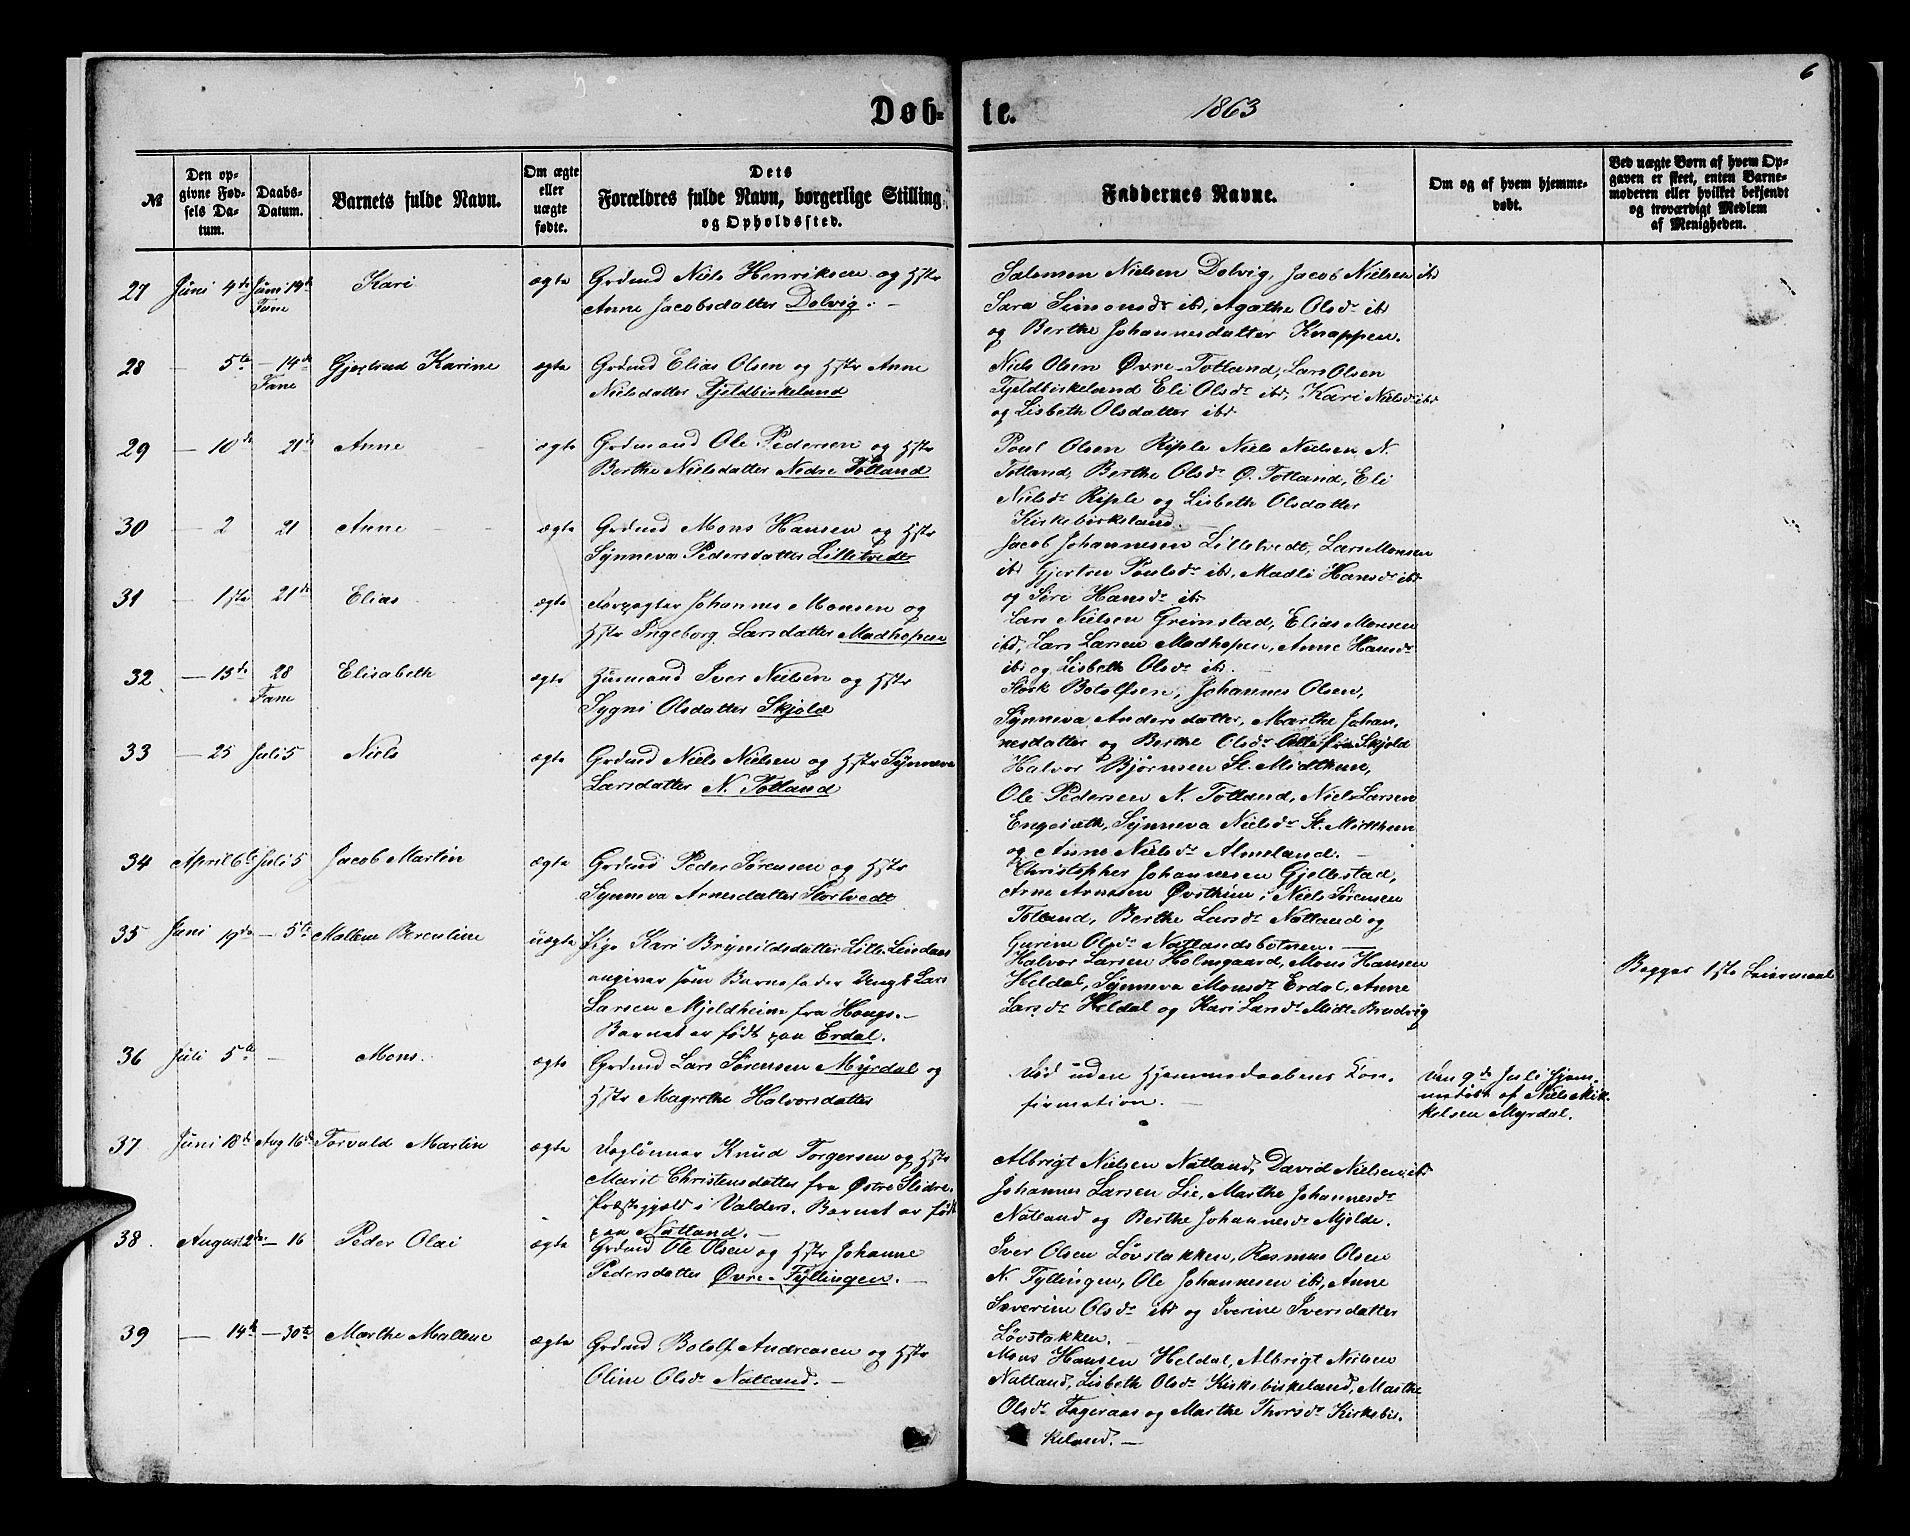 6
Døb-te. 1863
№
Den opgivne Fødsels Datum.
Daabs-Datum.
Barnets fulde Navn.
Om ægte eller uægte fødte.
Dets Forældres fulde Navn, borgerlige Stilling og Opholdssted.
Faddernes Navne.
Om og af hvem hjemmedøbt.
Ved uægte Børn af hvem Opgaven er skeet, enten Barnemoderen eller hvilket bekjendt og troværdigt Medlem af Menigheden.
27 Juni 4de Juni 14de Fane Kari ægte
Grdmd Niels Henriksen og Hstr
Anne Jacobsdatter Dolvig. —
Salomon Nielsen Dolvig, Jacob Nielsen ibd
Sara Simonsdr ibd, Agathe Olsdr ibd
og Berthe Johannesdatter Knappen.
28 — 5te — 14de Fane Gjertrud Karine ægte
Grdmd Elias Olsen og Hstr Anne
Nielsdatter Fjeldbirkeland
Niels Olsen Øvre-Totland, Lars Olsen
Fjeldbirkeland Eli Olsdr ibd, Kari Nielsdr ibd
og Lisbeth Olsdatter ibd
29 — 10de 21de Anne ægte
Grdmand Ole Pedersen og Hstr
Berthe Nielsdatter Nedre Totland
Poul Olsen Riple Niels Nielsen N.
Totland, Berthe Olsdr Ø. Totland, Eli
Nielsdr Riple og Lisbeth Olsdatter
Kirkebirkeland.
30 — 2 21 Anne ægte
Grdmd Mons Hansen og Hstr
Synneva Pedersdatter Lilletvedt
Jacob Johannesen Lilletvedt, Lars Monsen
ibd Gjertru Poulsdr ibd, Madli Hansdr ibd
og Siri Hansdr ibd
31 — 1ste 21de Elias ægte
Forpagter Johannes Monsen og
Hstr Ingeborg Larsdatter Madhopen
Lars Nielsen Grimstad, Elias Monsen
ibd, Lars Larsen Madhopen, Anne Hansdr
ibd og Lisbeth Olsdr ibd. —
32 — 13de 28 Fane Elisabeth ægte
Husmand Iver Nielsen og Hstr
Sygni Olsdatter Skjold
Stork Botolfsen, Johannes Olsen,
Synneva Andersdatter, Marthe Johan,
nesdatter og Berthe Olsdr Alle fra Skjold
33 — 25 Juli 5 Niels ægte
Grdmd Niels Nielsen og Hstr Synneva
Larsdatter N. Totland
Halvor Bjørnsen St. Midthun,
Ole Pedersen N. Totland, Niels Larsen
Synneva Nielsdr St. Midthun
og Anne Nielsdr Almeland. —
34 April 6te Juli 5 Jacob Martin ægte
Grdmd Peder Sørensen og Hstr
Synneva Arnesdatter Stortvedt
Christopher Johannesen Gjellestad,
Arne Arnesen Øvsthun, Niels Sørensen
Totland, Berthe Larsdr Natland og
Gurine Olsdr Natlandsbotnen. —
35 Juni 19de — 5te Mallene Berentine uægte
Pige Kari Brynildsdatter Lille Lindaas
angiver som Barnefader Ungk Lars
Larsen Mjeldheim fra Hougs. —
Barnet er født paa Erdal.
Halvor Larsen Holmgaard, Mons Hansen
Heldal, Synneva Monsdr Erdal, Anne
Larsdr Heldal og Kari Larsdr Midt-Bradvig
Begges 1ste Leiermaal
36 Juli 5te — Mons. ægte
Grdmd Lars Sørensen Myrdal og
Hstr Magrethe Halvorsdatter
Død uden Hjemmedaabens Con,
firmation. —
Den 9de Juli hjem,
medøbt af Niels Mik,
kelsen Myrdal.
37 Juni 18de Aug 16de Torvald Martin ægte
Daglønner Knud Torgersen og Hstr
Marit Christensdatter fra Østre Slidre
Præstegjæld i Valders. Barnet er født
paa Natland. —
Albrigt Nielsen Natland, David Nielsen ibd
Johannes Larsen Lie, Marthe Johannesdr
Natland og Berthe Johannesdr Mjelde.
38 August 2den — 16 Peder Olai ægte
Grdmd Ole Olsen og Hstr Johanne
Pedersdatter Øvre-Fyllingen. —
Iver Olsen Løvstakken, Rasmus Olsen
N. Fyllingen, Ole Johannesen ibd, Anne
Severine Olsdr ibd og Iverine Iversdatter
Løvstakken.
39 — 14de — 30te Marthe Mallene ægte
Grdmd Botolf Andreasen og Hstr
Oline Olsdr Natland. —
Mons Hansen Heldal, Albrigt Nielsen
Natland, Lisbeth Olsdr Kirkebirkeland, Marthe
Olsdr Fageraas og Marthe Thorsdr Kirkebir,
keland. —